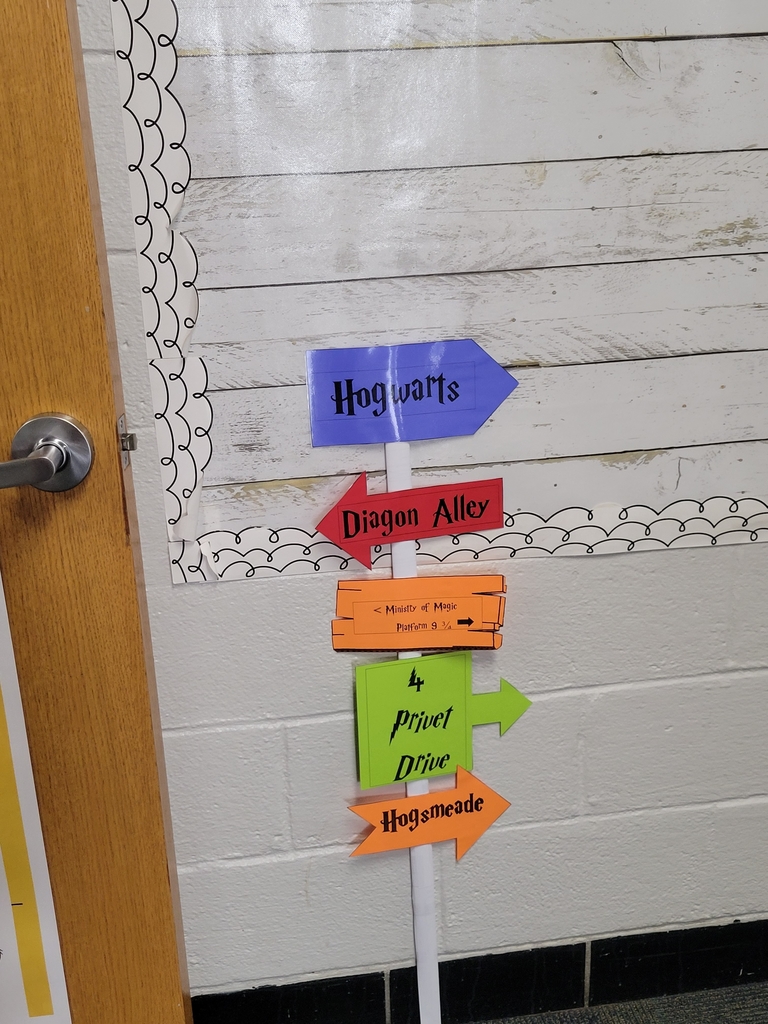 Hogwarts
Diagon Alley
< Ministry of Magic
Platform 9 ¾
4
Privet
Drive
Hogsmeade